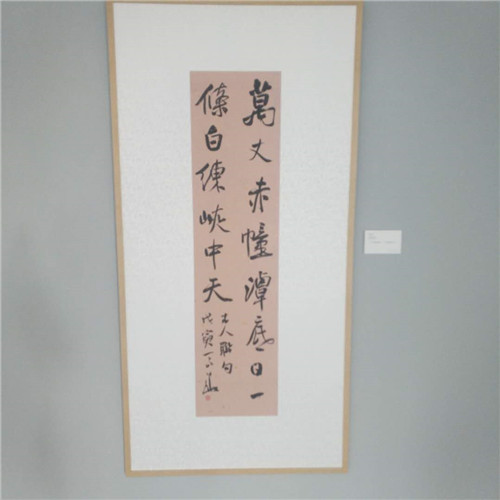 萬丈赤幢潭底日一
條白練峽中天
古人聯句
戊寅